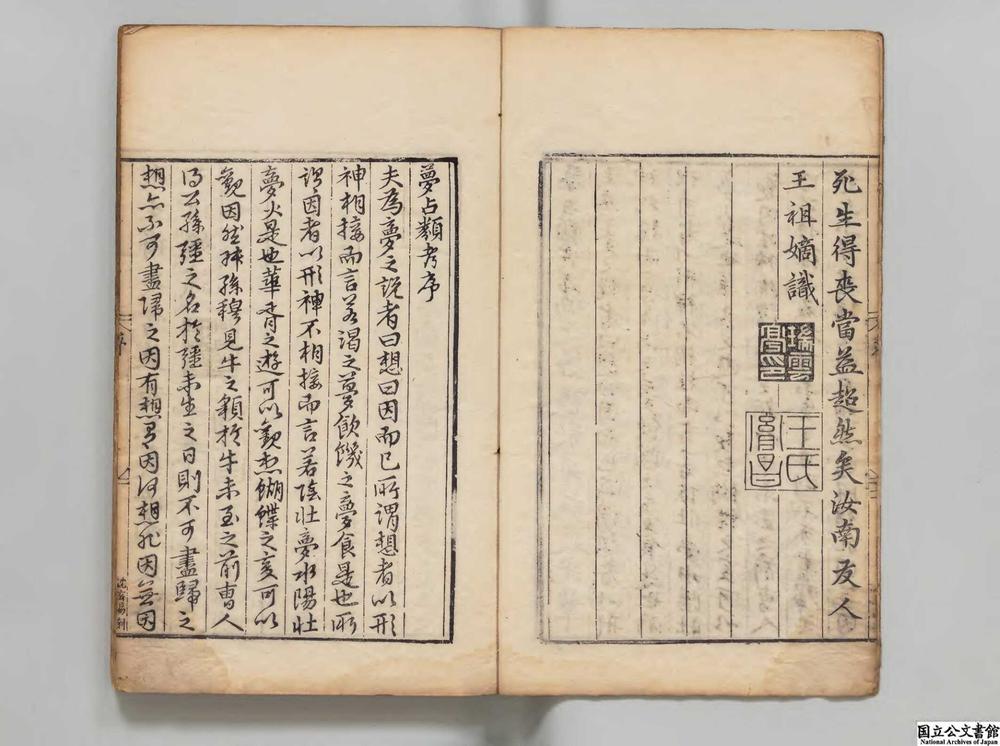 死生得喪當益超然矣汝南友人
王祖嫡識
瑞雲
王氏
夢占類考序
夫為夢之說者曰想曰因而已所謂想者以形
神相接而言若渴之夢飲饑之夢食是也所
謂因者以形神不相接而言若陰壯夢水陽壯
夢火是也華胥之遊可以觀想蝴蝶之變可以
觀因然叔孫穆見牛之貌於牛未至之前曹人
得公孫彊之名於彊未生之日則不可盡歸之
想亦不可盡歸之因有想有因何想非因無因
序
國立公文書館
National Archives of Japan